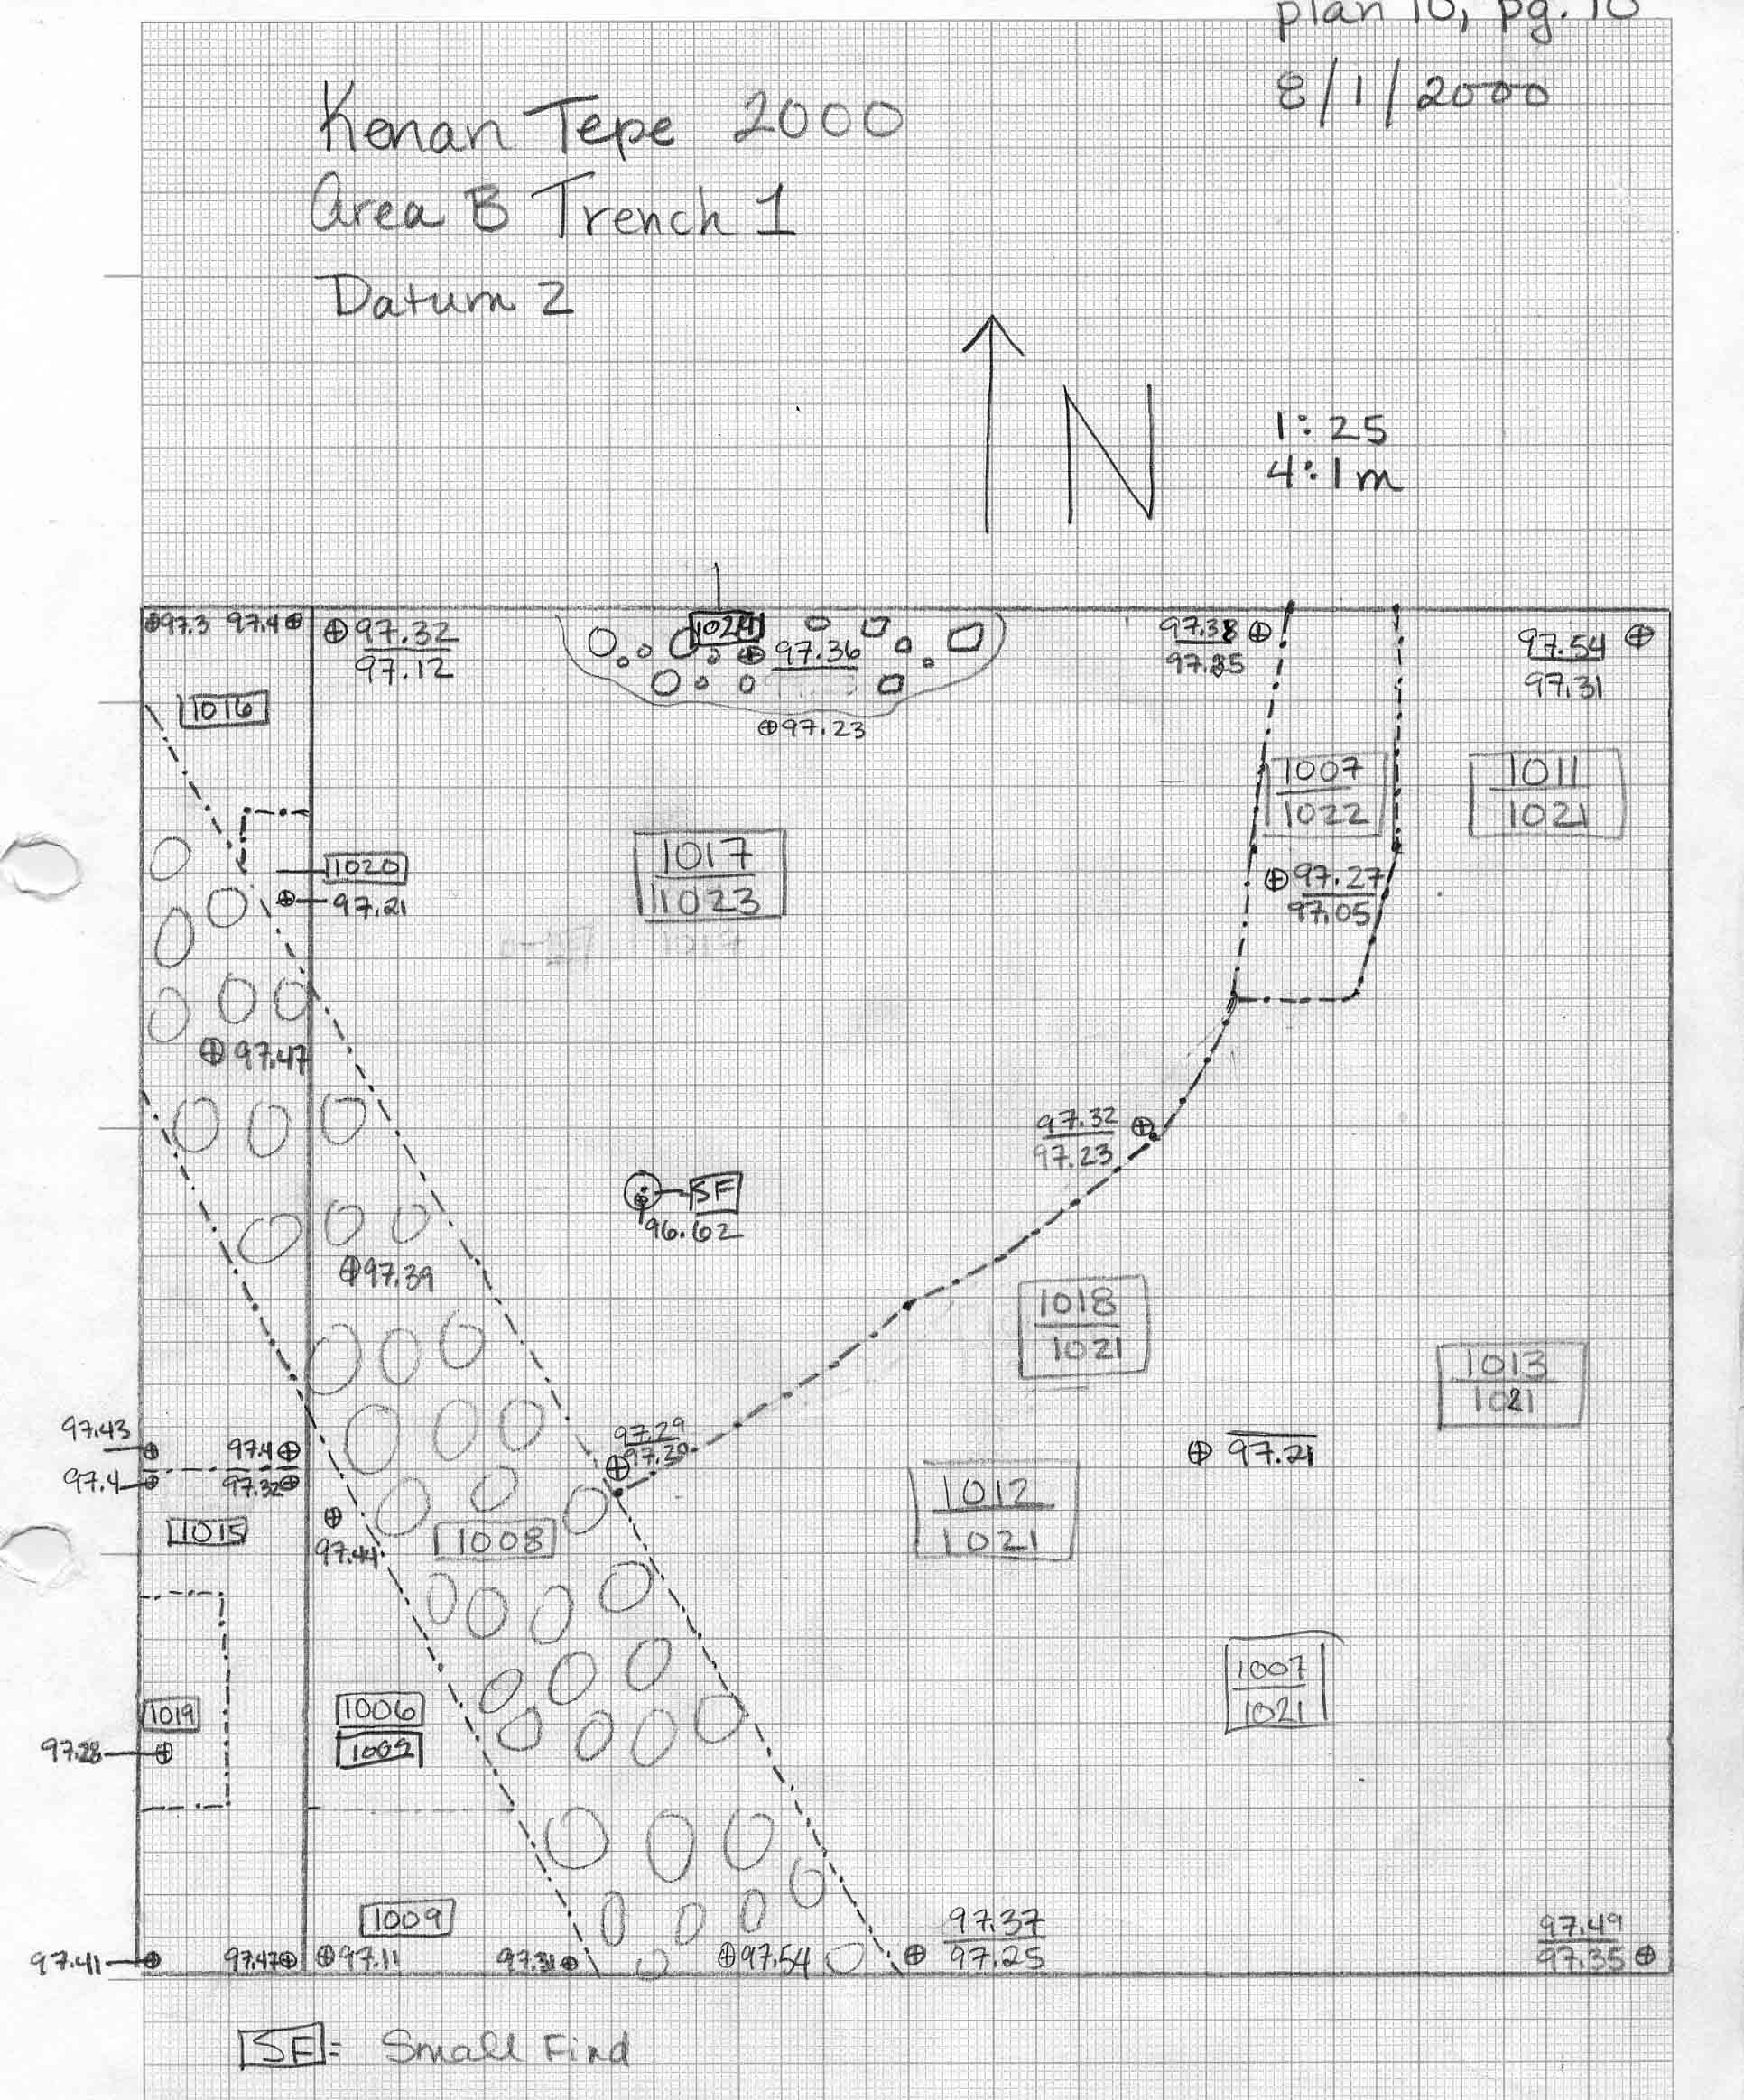 plan 10, pg. 10
8/1/2000
Kenan Tepe 2000
Area B Trench 1
Datum 2
N
1:25
4:1m
97.3 97.4
97.32
97.12
1024
97.36
97.23
97.38
97.25
97.54
97.31
1016
1007
1022
1011
1021
1017
1023
1020
97.21
97.27
97.05
97.47
97.32
97.23
SF
96.62
97.39
1018
1021
1013
1021
97.43
97.4
97.4
97.32
97.29
97.20
97.21
1012
1021
1015
97.44
1008
1007
1021
1019
97.28
1006
1009
97.37
97.25
97.49
97.35
97.41
97.47
97.11
97.31
97.54
SF = Small Find